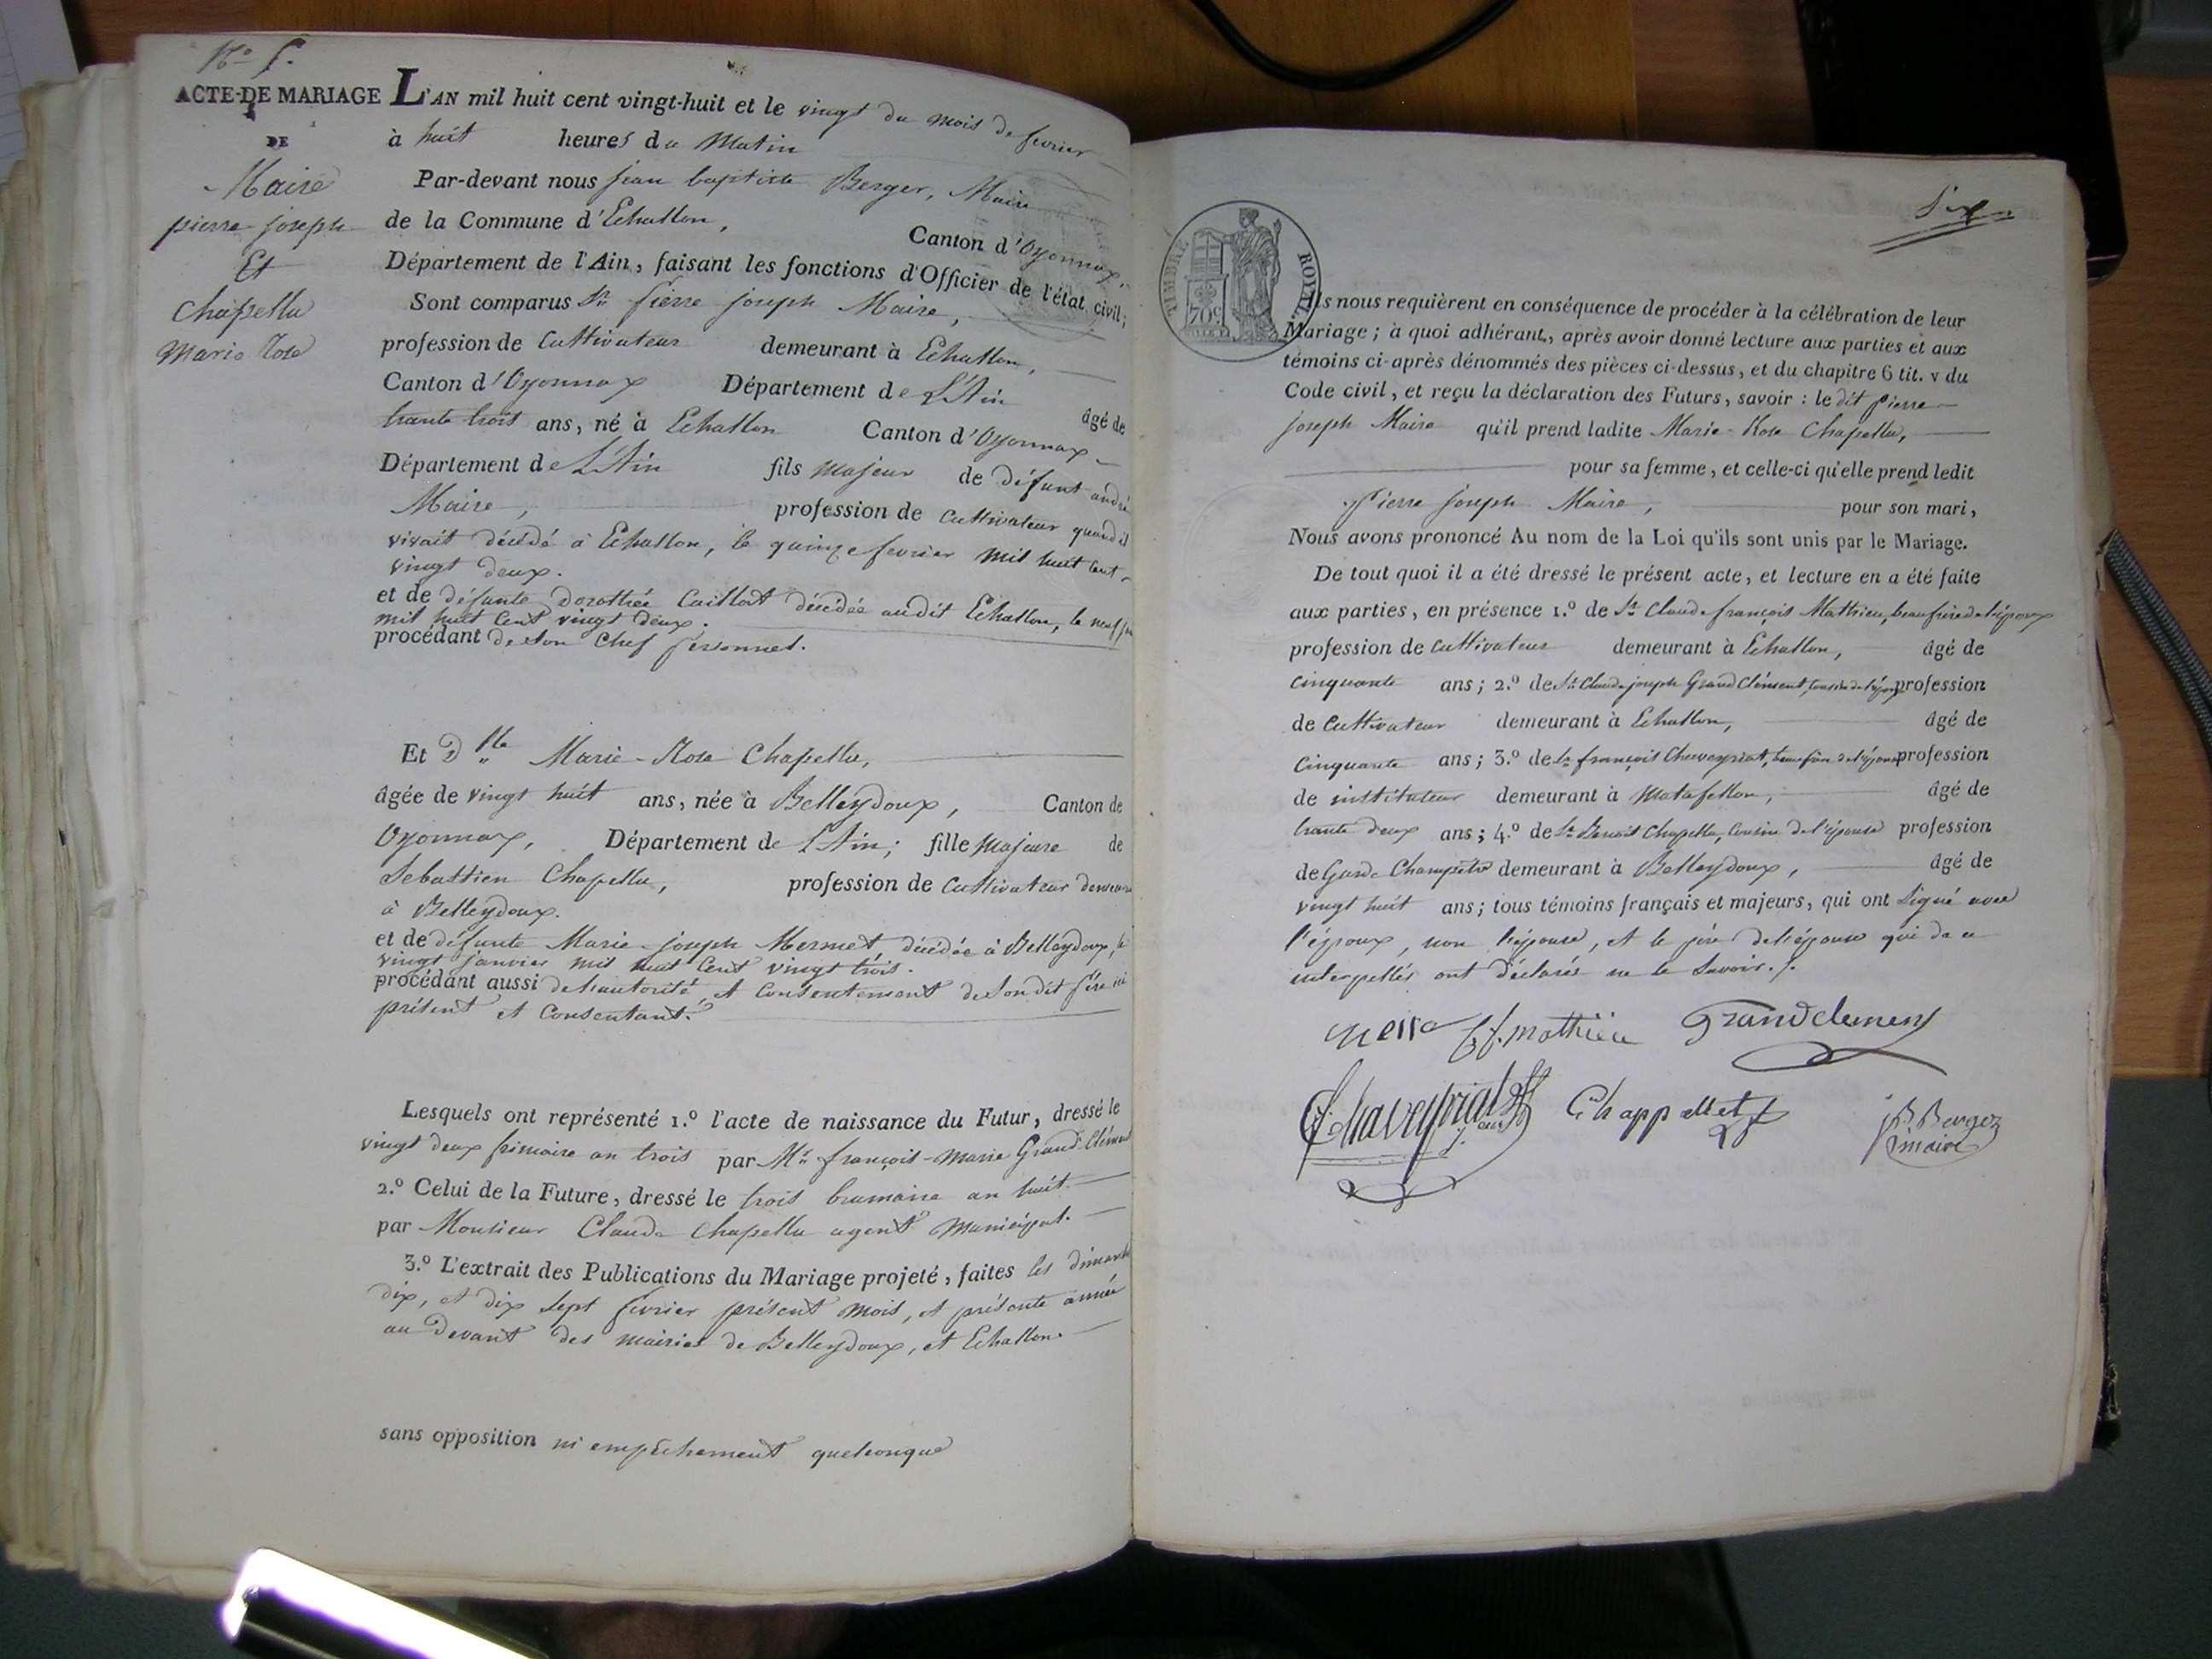 No 5.
ACTE DE MARIAGE
DE
Maire
pierre joseph
Et
Chapellu
Marie Rose
L'AN mil huit cent vingt-huit et le vingt du mois de fevrier
à huit heures du Matin
Par-devant nous jean baptiste Berger, Maire
de la Commune d'Echallon, Canton d'Oyonnax,
Département de l'Ain, faisant les fonctions d'Officier de l'état civil;
Sont comparus Sr. pierre joseph Maire,
profession de Cultivateur demeurant à Echallon,
Canton d'Oyonnax Département de L'Ain âgé de
trante trois ans, né à Echallon Canton d'Oyonnax
Département de L'Ain fils majeur de défunt andré
Maire, profession de Cultivateur quand il
vivait décédé à Echallon, le quinze fevrier mil huit cent
vingt deux.
et de défunte Dorothée Caillat décédée audit Echallon, le neuf
mil huit cent vingt deux.
procédant de son Chef personnel.
Et Dlle Marie-Rose Chapellu,
âgée de vingt huit ans, née à Belleydoux, Canton de
Oyonnax, Département de L'Ain; fille majeure de
Sebastien Chapellu, profession de Cultivateur
à Belleydoux.
et de défunte Marie-joseph Mermet décédée à Belleydoux, le
vingt janvier mil huit cent vingt trois.
procédant aussi de l'autorité, et Consentement de son dit père ici
présent et Consentant.
Lesquels ont représenté 1.º l'acte de naissance du Futur, dressé le
vingt deux frimaire an trois par Mr. françois-Marie Grand-Clément
2.º Celui de la Future, dressé le trois brumaire an huit
par Monsieur Claude Chapellu agent Municipal.
3.º L'extrait des Publications du Mariage projeté, faites les dimanche
dix, et dix sept fevrier présent mois, et présente année
au devant des mairies de Belleydoux, et Echallon.
sans opposition ni empêchement quelconque
Six
TIMBRE ROYAL
70c
Ils nous requièrent en conséquence de procéder à la célébration de leur
Mariage; à quoi adhérant, après avoir donné lecture aux parties et aux
témoins ci-après dénommés des pièces ci-dessus, et du chapitre 6 tit. v du
Code civil, et reçu la déclaration des Futurs, savoir: le dit pierre
joseph Maire qu'il prend ladite Marie-Rose Chapellu,
pour sa femme, et celle-ci qu'elle prend ledit
Pierre joseph Maire, pour son mari,
Nous avons prononcé Au nom de la Loi qu'ils sont unis par le Mariage.
De tout quoi il a été dressé le présent acte, et lecture en a été faite
aux parties, en présence 1.º de Sr. Claude françois Matthieu, beaufrère de l'époux
profession de Cultivateur demeurant à Echallon, âgé de
Cinquante ans; 2.º de Sr. Claude joseph Grand Clément, Cousin de l'époux profession
de Cultivateur demeurant à Echallon, âgé de
Cinquante ans; 3.º de Sr. françois Chaveyriat, beaufrère de l'époux profession
de instituteur demeurant à Matafellon, âgé de
trante deux ans; 4.º de Sr. Benoit Chapellu, Cousin de l'épouse profession
de Garde Champetre demeurant à Belleydoux, âgé de
vingt huit ans; tous témoins français et majeurs, qui ont signé avec
l'époux, non l'épouse, et le père de l'épouse qui de ce
interpellés ont déclarés ne le savoir./.
C.f. mathieu Grandclement
Chaveyriat Chappellut J B Berger
maire